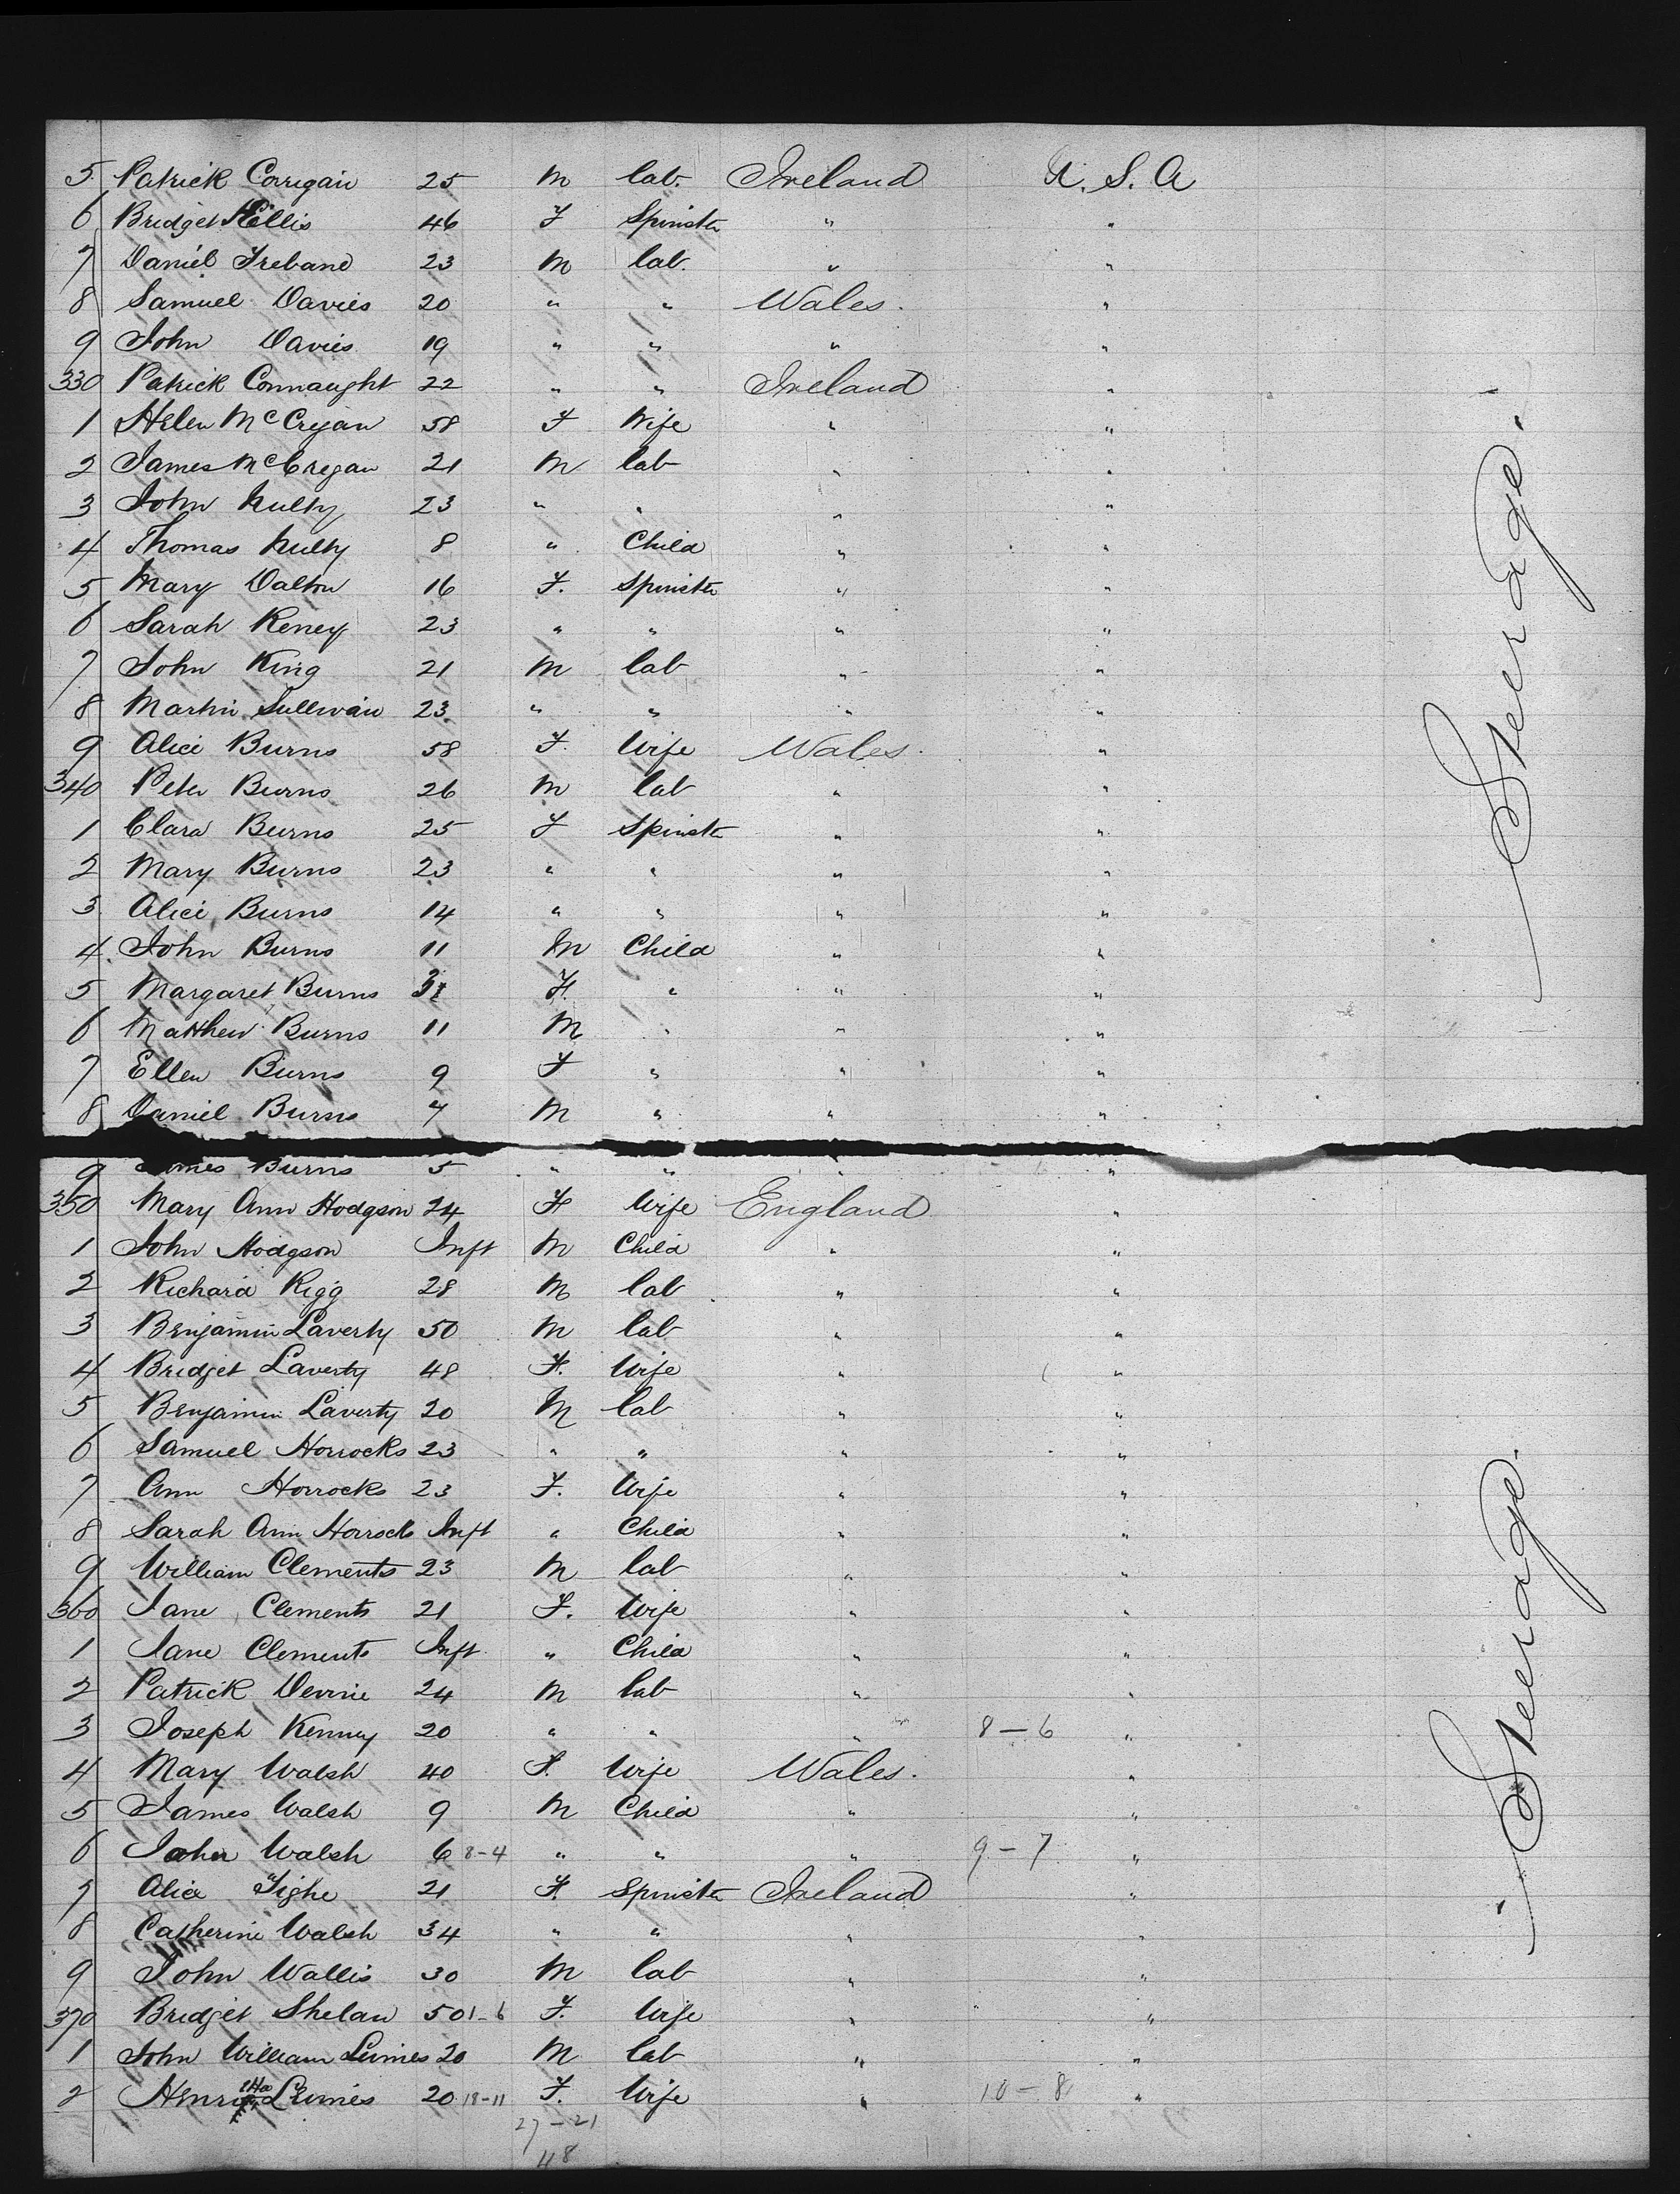 5 Patrick Corrigan 25 M lab. Ireland U. S. A
6 Bridget Hellis 46 F Spinster " "
7 Daniel Treband 23 M lab. " "
8 Samuel Davies 20 " " Wales. "
9 John Davies 19 " " " "
330 Patrick Connaught 22 " " Ireland "
1 Helen McCregan 58 F Wife " "
2 James McCregan 21 M lab " "
3 John Nulty 23 " " " "
4 Thomas Nulty 8 " Child " "
5 Mary Dalton 16 F. Spinster " "
6 Sarah Keney 23 " " " "
7 John King 21 M lab " "
8 Martin Sullivan 23 " " " "
9 Alice Burns 58 F. Wife Wales. "
340 Peter Burns 26 M lab " "
1 Clara Burns 25 F Spinster " "
2 Mary Burns 23 " " " "
3 Alice Burns 14 " " " "
4 John Burns 11 M Child " "
5 Margaret Burns F. " " "
6 Matthew Burns 11 M " " "
7 Ellen Burns 9 F " " "
8 Daniel Burns 7 M " " "
Steerage.
9 James Burns 5 " " " "
350 Mary Ann Hodgson 24 F Wife England "
1 John Hodgson Inft M Child " "
2 Richard Rigg 28 M lab " "
3 Benjamin Laverty 50 M lab " "
4 Bridget Laverty 48 F. Wife " "
5 Benjamin Laverty 20 M lab " "
6 Samuel Horrocks 23 " " " "
7 Ann Horrocks 23 F. Wife " "
8 Sarah Ann Horrocks Inft " Child " "
9 William Clements 23 M lab " "
360 Jane Clements 21 F. Wife " "
1 Jane Clements Inft " Child " "
2 Patrick Devine 24 M lab " "
3 Joseph Kenny 20 " " " 8-6 "
4 Mary Walsh 40 F. Wife Wales. "
5 James Walsh 9 M Child " "
6 John Walsh 6 8-4 " " " 9-7 "
7 Alice Tighe 21 F. Spinster Ireland "
8 Catherine Walsh 34 " " " "
9 John Wallis 30 M lab " "
370 Bridget Shelan 50 1-6 F. Wife " "
1 John William Lumes 20 M lab " "
2 Henrietta Lumes 20 18-11 F. Wife " 10-8 "
27-21
48
Steerage.